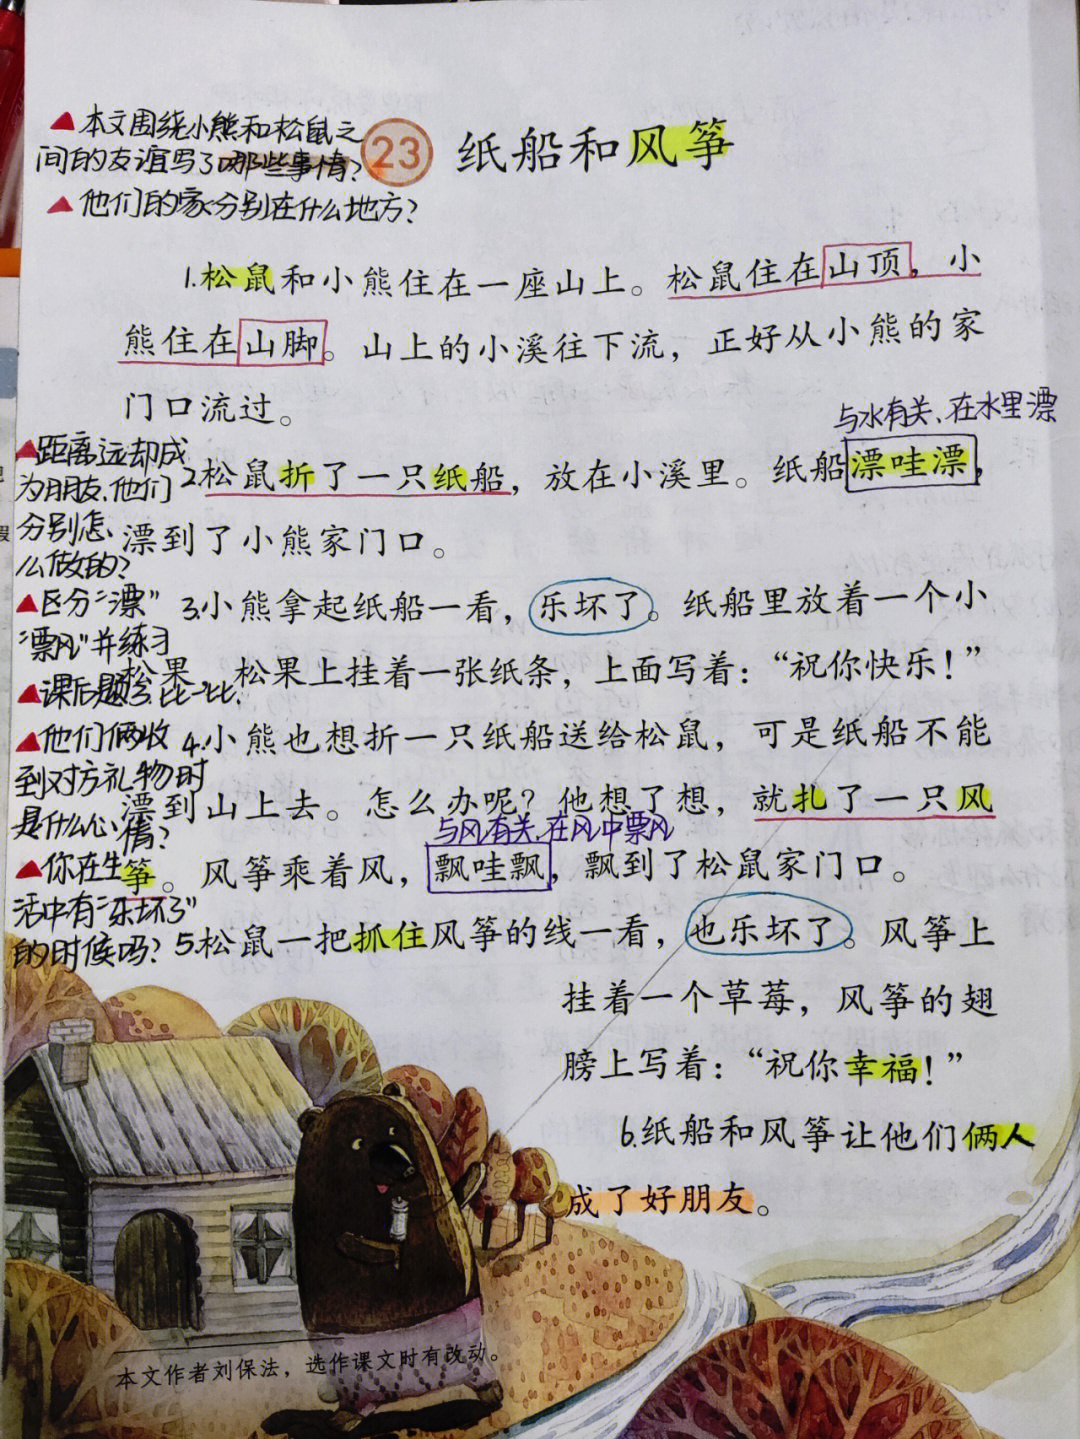 ▲本文围绕小熊和松鼠之
间的友谊写了哪些事情?
▲他们的家分别在什么地方?
23 纸船和风筝
1.松鼠和小熊住在一座山上。松鼠住在山顶，小
熊住在山脚。山上的小溪往下流，正好从小熊的家
门口流过。
与水有关、在水里漂
▲距离远却成
为朋友、他们
分别怎
么做的?
2松鼠折了一只纸船，放在小溪里。纸船漂哇漂，
漂到了小熊家门口。
▲区分“漂”
“飘”并练习
▲课后题3.比一比.
3.小熊拿起纸船一看，乐坏了。纸船里放着一个小
松果，松果上挂着一张纸条，上面写着：“祝你快乐！”
▲他们俩收
到对方礼物时
是什么心
情?
4.小熊也想折一只纸船送给松鼠，可是纸船不能
漂到山上去。怎么办呢？他想了想，就扎了一只风
与风有关、在风中飘
筝。风筝乘着风，飘哇飘，飘到了松鼠家门口。
▲你在生
活中有“乐坏了”
的时候吗?
5.松鼠一把抓住风筝的线一看，也乐坏了。风筝上
挂着一个草莓，风筝的翅
膀上写着：“祝你幸福！”
6.纸船和风筝让他们俩人
成了好朋友。
本文作者刘保法，选作课文时有改动。